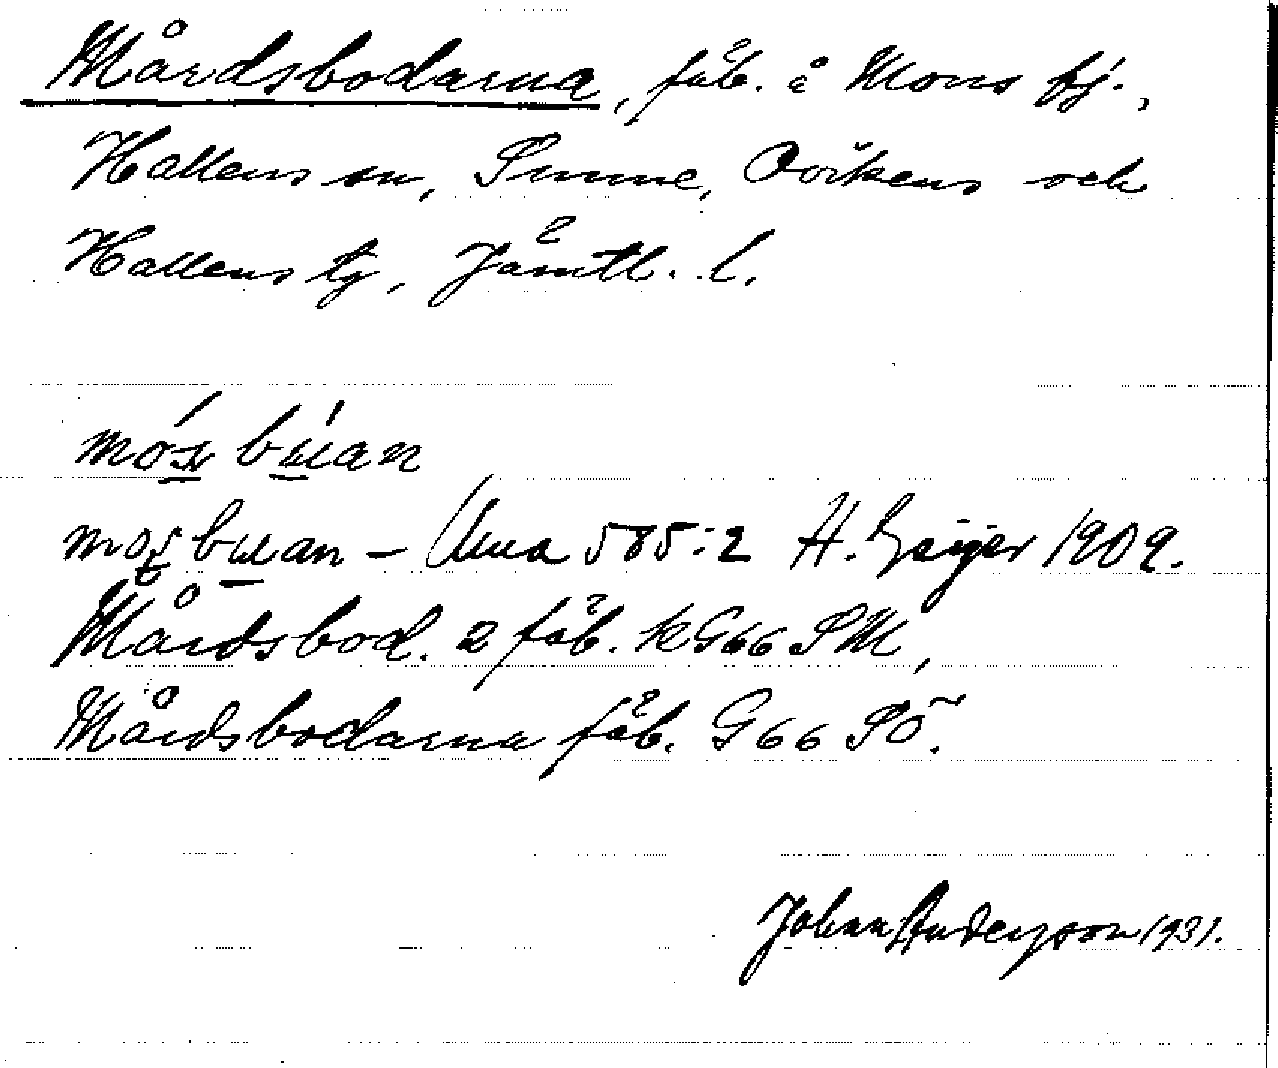 Mårdsbodarna, fäb. å Mons fj.,
Hallens sn, Sunne, Ovikens och
Hallens tg, Jämtl. l.
bu̲an
bu̲an – Uma 585:2 H. Geijer 1909.
Mårdsbod. 2 fäb. k G66 SM,
Mårdsbodarna fäb. G66 SÖ.
Johan Andersson 1931.